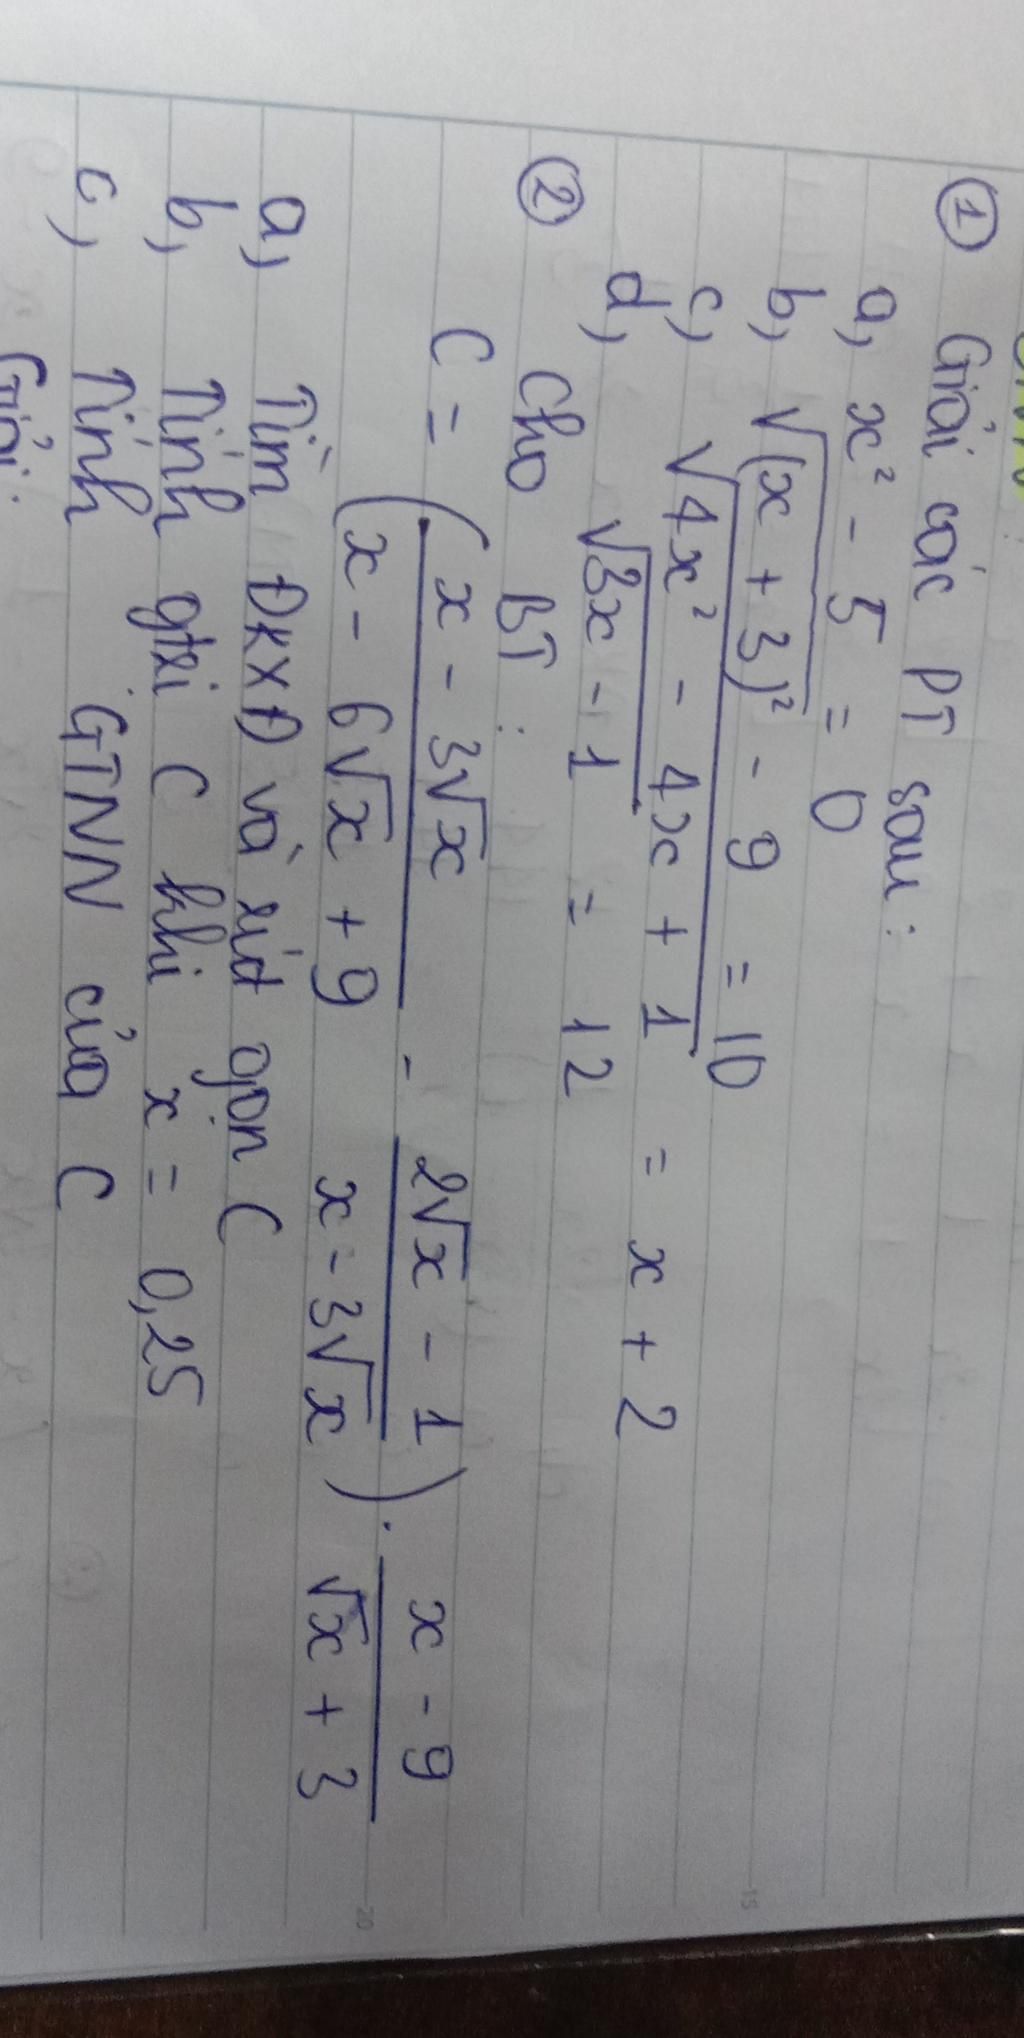 ① Giải các PT sau:
a, x² - 5 = 0
b, √(x + 3)² - 9 = 10
c, √4x² - 4x + 1 = x + 2
d, √3x - 1 = 12
② Cho BT:
C = (x - 3√x / x - 6√x + 9 - 2√x - 1 / x - 3√x) . x - 9 / √x + 3
a, Tìm ĐKXĐ và rút gọn C
b, Tính gtri C khi x = 0,25
c, Tính GTNN của C
Giải:
15
20